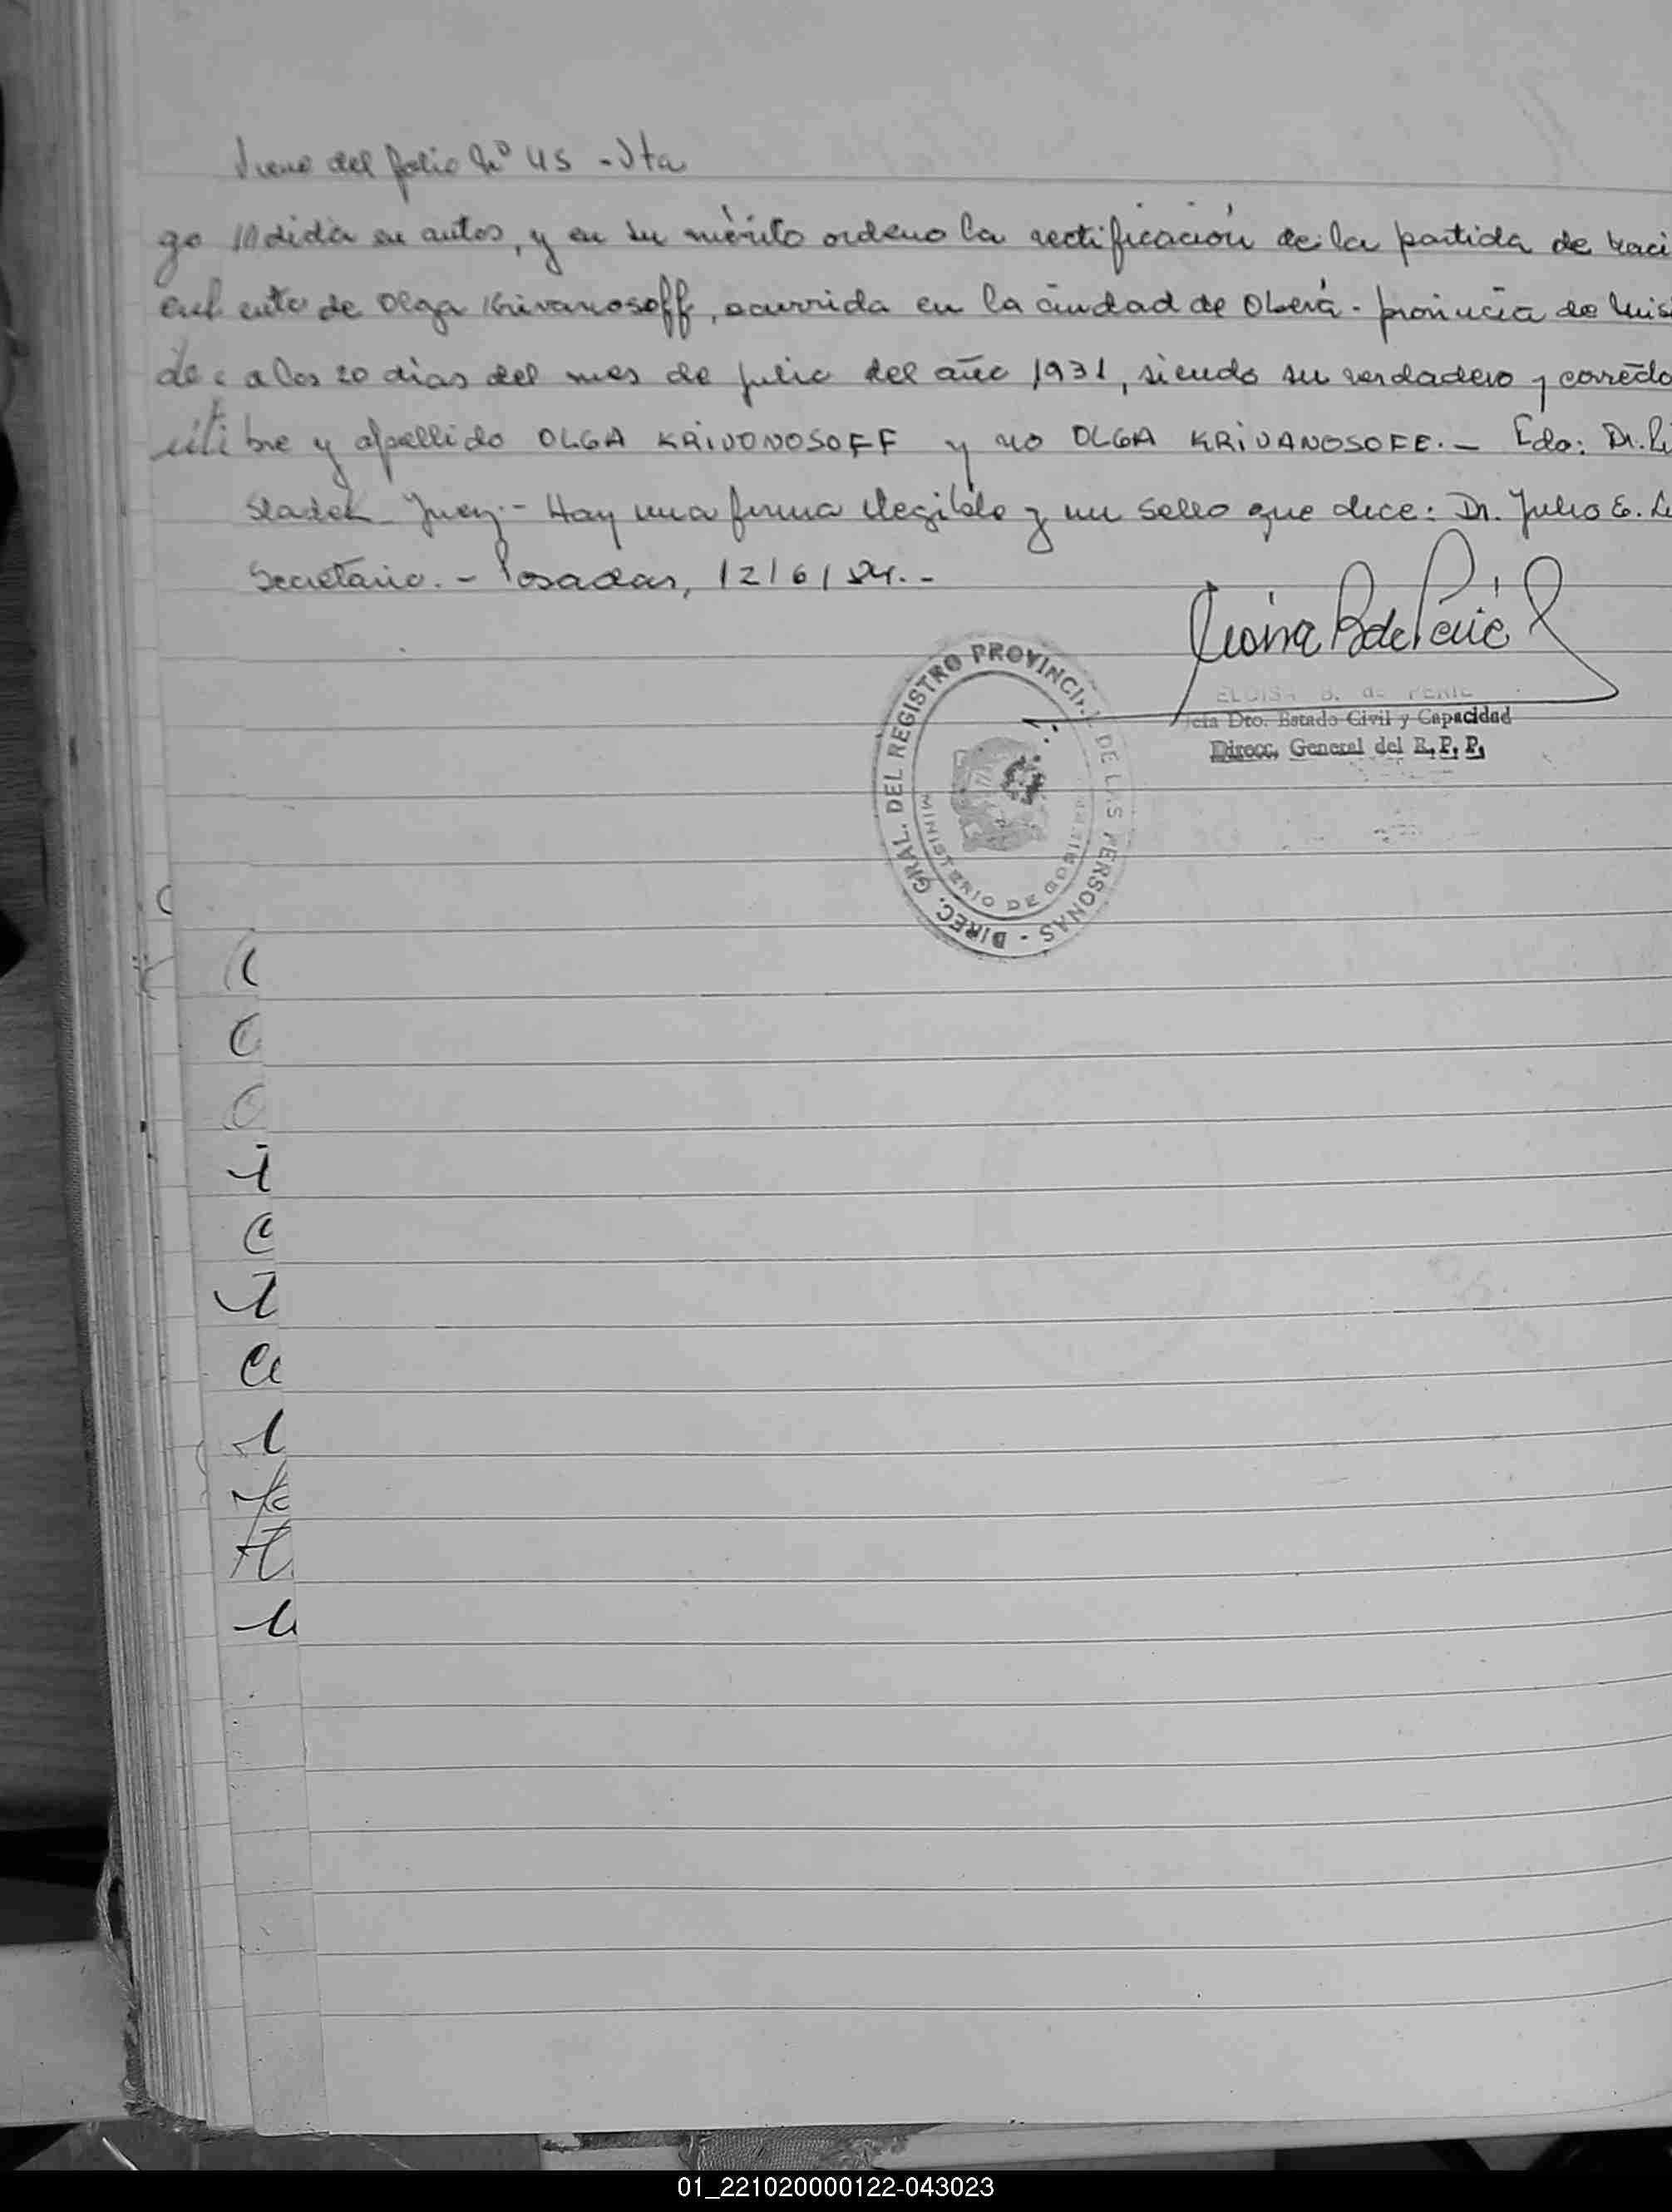 Viene del folio Nº 45 - Vta
go pedida en autos, y en su mérito ordeno la rectificación de la partida de naci
ento de Olga Krivanosoff, ocurrida en la ciudad de Oberá - provincia de Mis
a los 20 dias del mes de julio del año 1931, siendo su verdadero y correcto
bre y apellido OLGA KRIVONOSOFF y no OLGA KRIVANOSOFF. - Fdo: Dr.
Sladek Juez. - Hay una firma ilegible y un sello que dice: Dr. Julio E.
Secretario. - Posadas, 12/6/84. -
ELOISA B. de PERIC
Jefa Dto. Estado Civil y Capacidad
Direcc. General del R. P. P.
DIREC. GRAL. DEL REGISTRO PROVINCIAL DE LAS PERSONAS -
MINISTERIO DE GOBIERNO
01_221020000122-043023